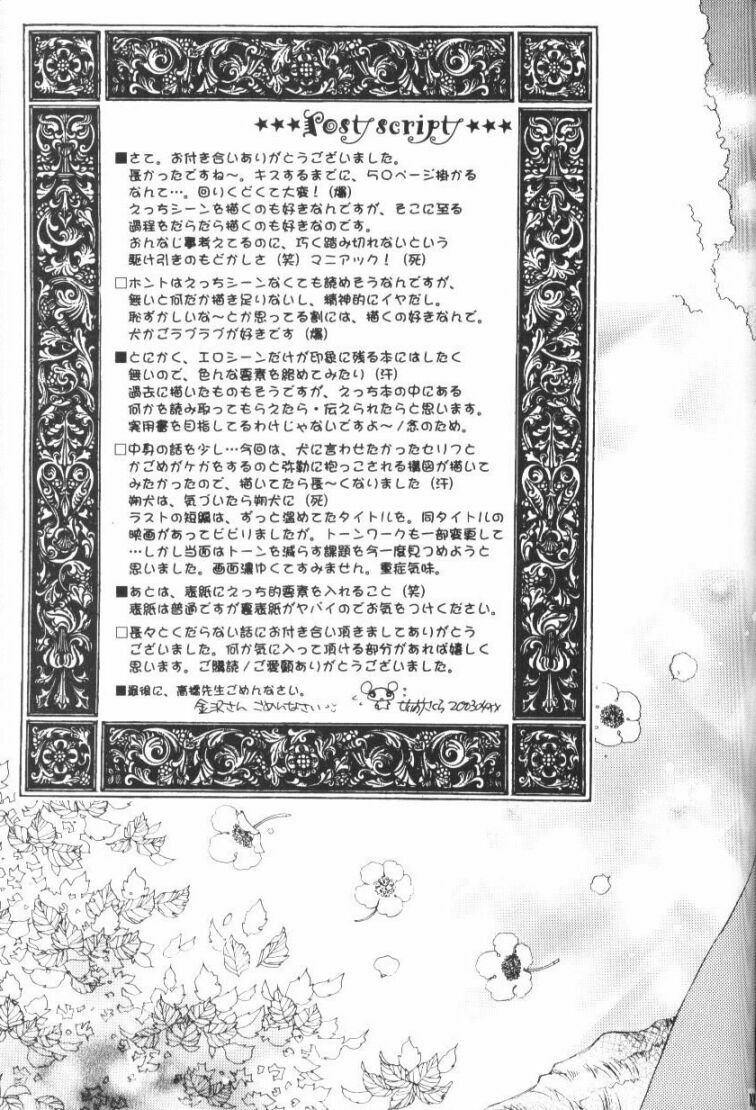 ★★★Post script★★★
■さて。お付き合いありがとうございました。
長かったですね～。キスするまでに、50ページ掛かる
なんて…。回いくどくて大変！（爆）
えっちシーンを描くのも好きなんですが、そこに至る
過程をだらだら描くのも好きなのです。
おんなじ事考えてるのに、巧く踏み切れないという
駆け引きのもどかしさ（笑）マニアック！（死）
□ホントはえっちシーンなくても読めそうなんですが、
無いと何だか描き足りないし、精神的にイヤだし。
恥ずかしいな～とか思ってる割には、描くの好きなんで。
犬かごラブラブが好きです（爆）
■とにかく、エロシーンだけが印象に残る本にはしたく
無いので、色んな要素を絡めてみたり（汗）
過去に描いたものもそうですが、えっち本の中にある
何かを読み取ってもらえたら・伝えられたらと思います。
実用書を目指してるわけじゃないですよ～/念のため。
□中身の話を少し…今回は、犬に言わせたかったセリフと
かごめがケガをするのと弥勒に抱っこされる構図が描いて
みたかったので、描いてたら長～くなりました（汗）
朔犬は、気づいたら朔犬に（死）
ラストの短編は、ずっと温めてたタイトルを。同タイトルの
映画があってビビりましたが。トーンワークも一部変更して
…しかし当面はトーンを減らす課題を今一度見つめようと
思いました。画面濃ゆくてすみません。重症気味。
■あとは、表紙にえっち的要素を入れること（笑）
表紙は普通ですが裏表紙がヤバイのでお気をつけください。
□長々とくだらない話にお付き合い頂きましてありがとう
ございました。何か気に入って頂ける部分があれば嬉しく
思います。ご購読/ご愛顧ありがとうございました。
■最後に、高橋先生ごめんなさい。
金沢さんごめんなさい